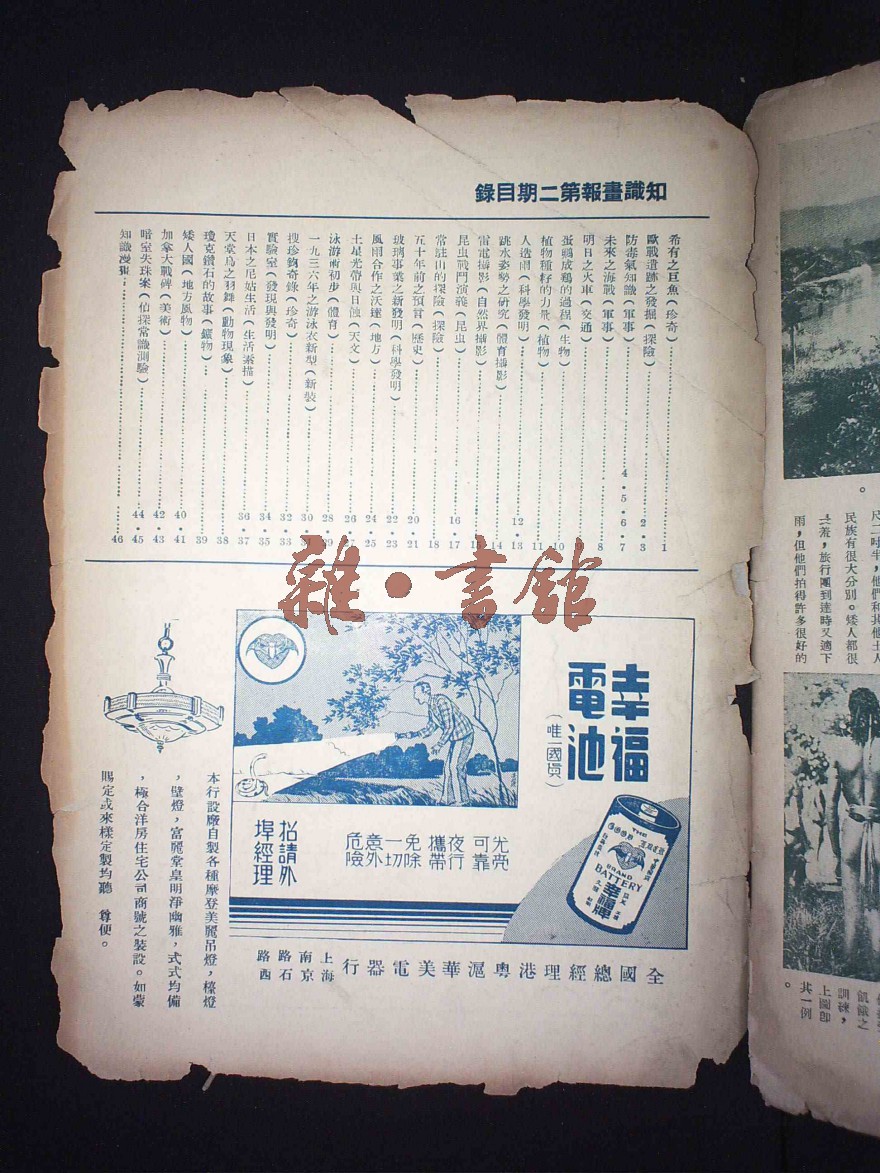 知識畫報第二期目錄
希有之巨魚(珍奇)……1
歐戰遺跡之發掘(探險)……2・3
防毒氣知識(軍事)……4・5・6・7
未來之海戰(軍事)……8
明日之火車(交通)……9
蛋鵝成鵝的過程(生物)……10
植物種籽的力量(植物)……11
人造雨(科學發明)……12・13
跳水姿勢之研究(體育攝影)……14
雷電攝影(自然界攝影)
昆虫戰鬥演義(昆虫)……16・17
常註山的探險(探險)……18
五十年前之預言(歷史)……20・21
玻璃事業之新發明(科學發明)……22・23
風雨合作之沃達(地方)……24・25
土星光帶與日蝕(天文)……26
泳游術初步(體育)……28
一九三六年之游泳衣新型(新裝)……30
搜珍鉤奇錄(珍奇)……32・33
實驗室(發現與發明)……34・35
日本之尼姑生活(生活素描)……36・37
天堂鳥之羽舞(動物現象)……38
瓊克鑽石的故事(鑛物)……39
矮人國(地方風物)……40・41
加拿大戰碑(美術)……42・43
暗室失珠案(偵探常識測驗)……44・45
知識漫畫……46
幸福電池
(唯一國貨)
光亮可靠
夜行攜帶
免除一切
意外危險
招請外埠經理
THE
GOOD LUCK
BRAND
BATTERY
幸福牌
全國總經理港粵滬華美電器行
上海南京路石路西
本行設廠自製各種摩登美麗吊燈,檯燈
,壁燈,富麗堂皇明淨幽雅,式式均備
,極合洋房住宅公司商號之裝設。如蒙
賜定或來樣定製均聽 尊便。
雜・書館
。
尺二吋半,他們和其他土人
民族有很大分別。矮人都很
害羞,旅行團到達時又適下
雨,但他們拍得許多很好的
飢餓之
訓練,
上圖卽
其一例
。